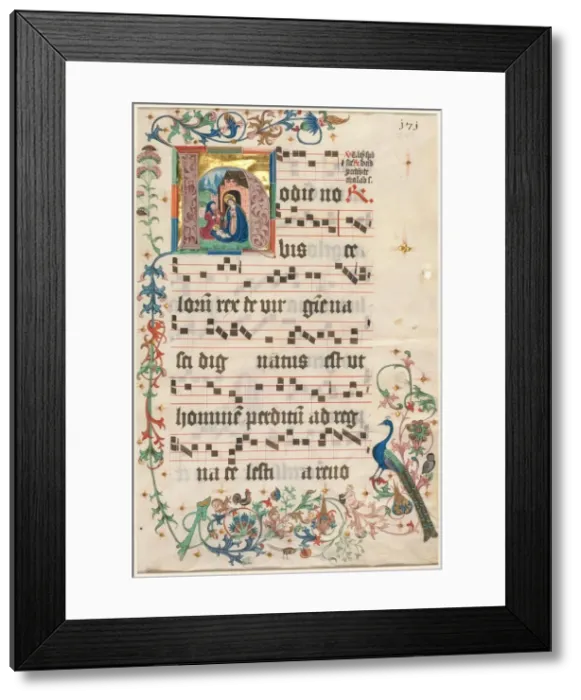 171
Hodie no
bis ce
lorū rex de vir gīe na
sci dig natus est ut
hominē perditū ad reg
na ce lesti a revo